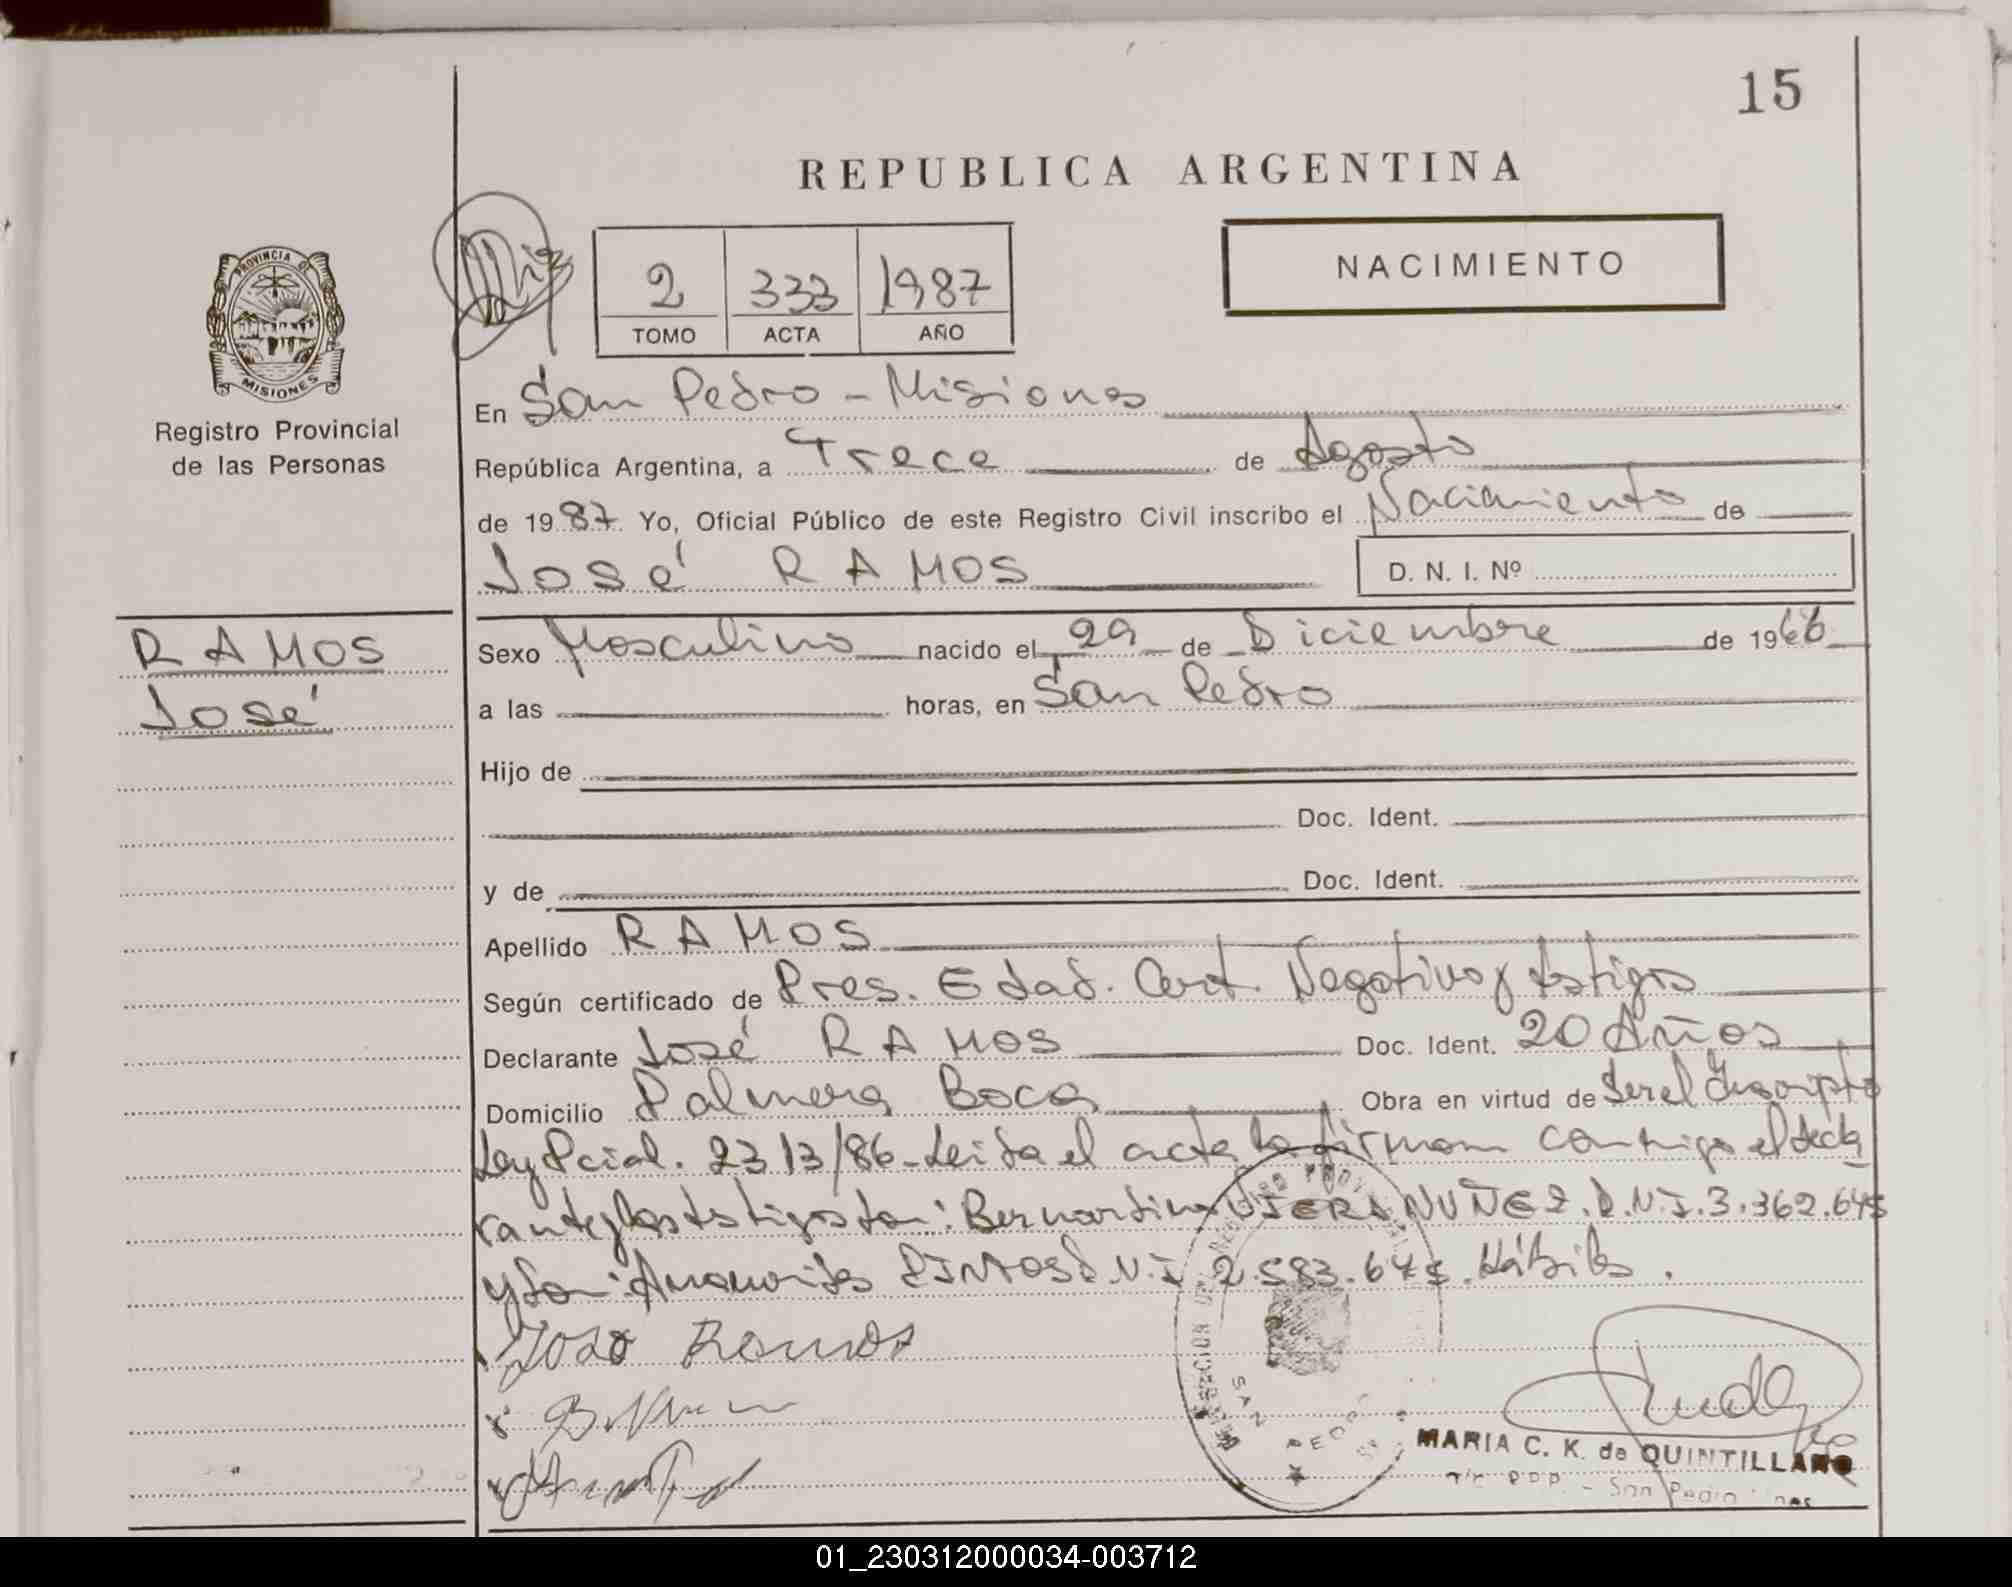 15
REPUBLICA ARGENTINA
2 333 1987
TOMO ACTA AÑO
NACIMIENTO
PROVINCIA DE
MISIONES
Registro Provincial
de las Personas
En San Pedro - Misiones
República Argentina, a Trece de Agosto
de 1987 Yo, Oficial Público de este Registro Civil inscribo el Nacimiento de
José RAMOS D. N. I. Nº
RAMOS
José
Sexo Masculino nacido el 29 de Diciembre de 1966
a las horas, en San Pedro
Hijo de
Doc. Ident.
y de Doc. Ident.
Apellido RAMOS
Según certificado de Pres. Edad. Cert. Negativo y testigos
Declarante José RAMOS Doc. Ident. 20 Años
Domicilio Palmera Boca Obra en virtud de Ser el Inscripto
Ley Pcial. 2313/86 - Leida el acta la firman conmigo el decla
rante y los testigos don: Bernardino VIERA NUÑEZ. D.N.I. 3.362.645
y don: PINTOS D.N.I 2.583.645. Hábiles.
José Ramos
SAN PEDRO
MARIA C. K. de QUINTILLAN
San Pedro
01_230312000034-003712